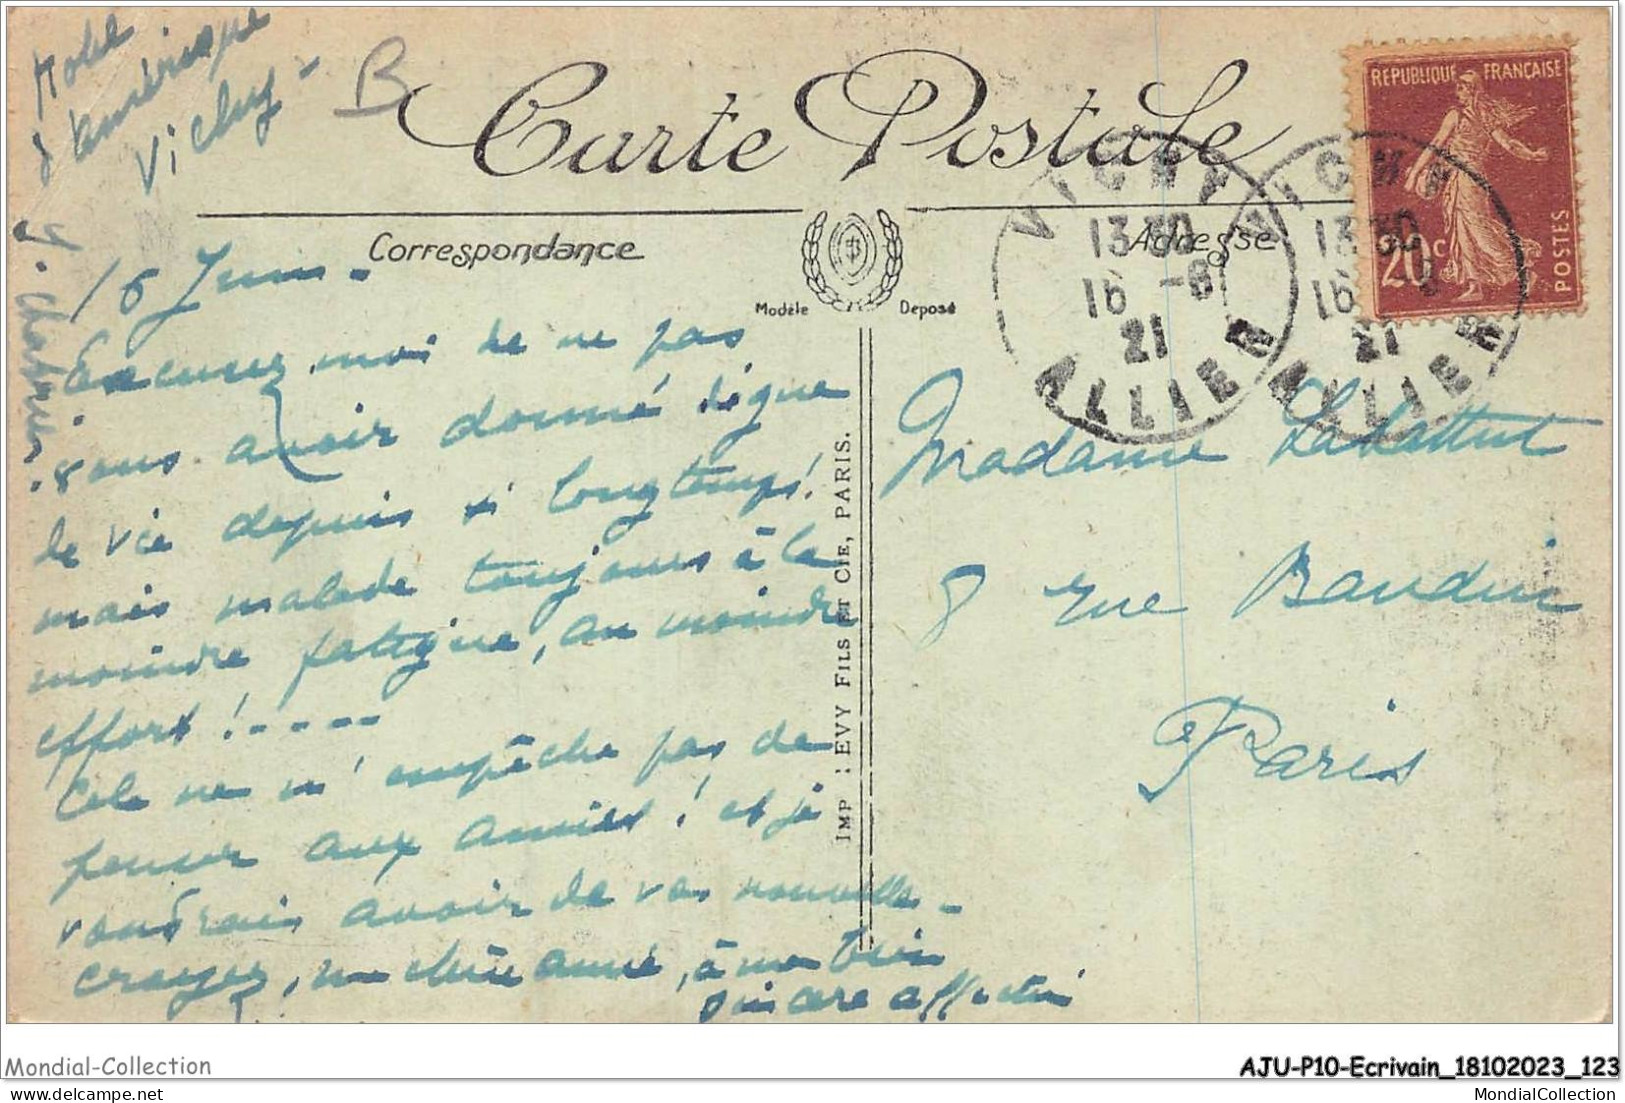 Hotel
d'amérique
Vichy -
B
Carte Postale
RÉPUBLIQUE FRANÇAISE
20c
POSTES
VICHY
13 30
16 -6
21
ALLIER
VICHY
13 30
16 -6
21
ALLIER
Correspondance
Adresse
Modèle Deposé
16 Juin -
Excusez moi de ne pas
vous avoir donné signe
de vie depuis si longtemps!
mais malade toujours à la
moindre fatigue, au moindre
effort! ----
Cela ne m'empêche pas de
penser aux amies! et je
voudrais avoir de vos nouvelles -
croyez, ma chère amie, à mon bien
sincère affection
IMP. LEVY FILS ET CIE, PARIS.
Madame
8 rue Baudin
Paris
Mondial-Collection
AJU-P10-Ecrivain_18102023_123
www.delcampe.net
MondialCollection